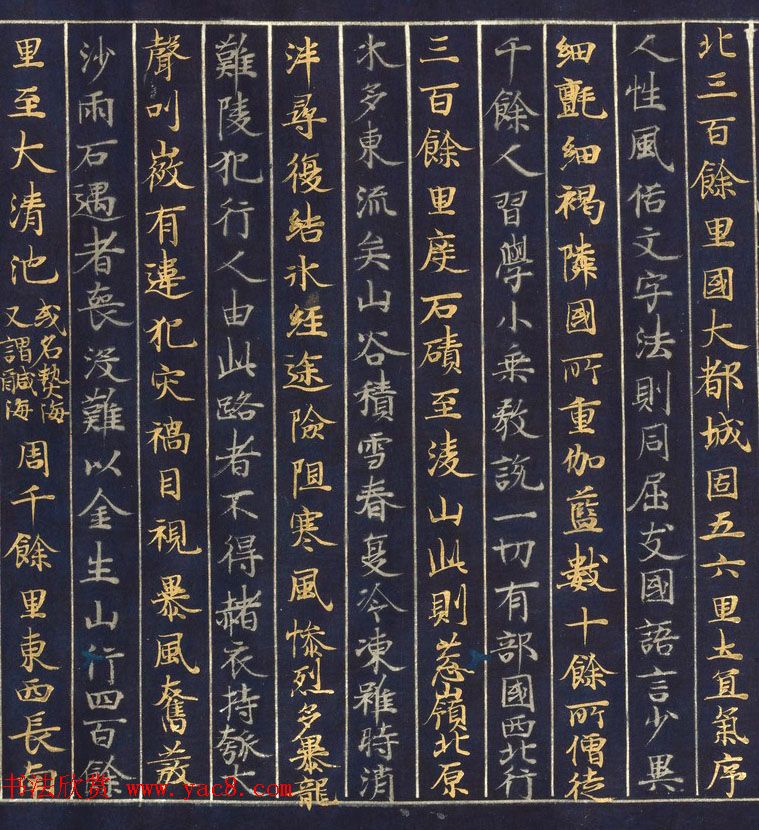 北三百餘里國大都城固五六里土宜氣序
人性風俗文字法則同屈支國語言少異
細氈細褐隣國所重伽藍數十餘所僧徒
千餘人習學小乗教說一切有部國西北行
三百餘里度石磧至淩山此則葱嶺北原
水多東流矣山谷積雪春夏冷凍雖時消
泮尋復結氷經途險阻寒風慘烈多暴龍
難陵犯行人由此路者不得赭衣持瓠大
聲叫有違犯灾禍目視暴風奮發
沙雨石遇者喪沒難以全生山行四百餘
里至大清池
或名熱海
又謂鹹海
周千餘里東西長南
书法欣赏 www.yac8.com